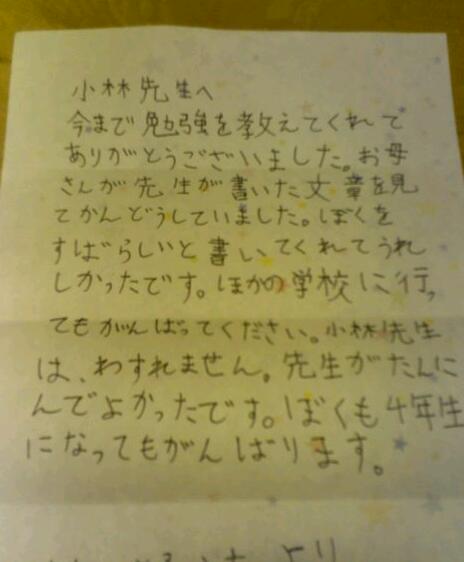 小林先生へ
今まで勉強を教えてくれて
ありがとうございました。お母
さんが先生が書いた文章を見
てかんどうしていました。ぼくを
すばらしいと書いてくれてうれ
しかったです。ほかの学校に行っ
てもがんばってください。小林先生
は、わすれません。先生がたんに
んでよかったです。ぼくも4年生
になってもがんばります。
より